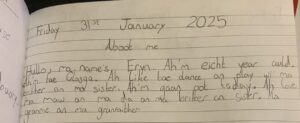 Friday 31st January 2025
About me
Hullo, ma name's, Eryn. Ah'm eicht year auld.
Ah'm fae Ah like tae dance an play wi ma
brither an ma sister. Ah'm gaun oot today. Ah
ma maw an ma da an ma brither an sister. Ma
grannie an ma granfaither